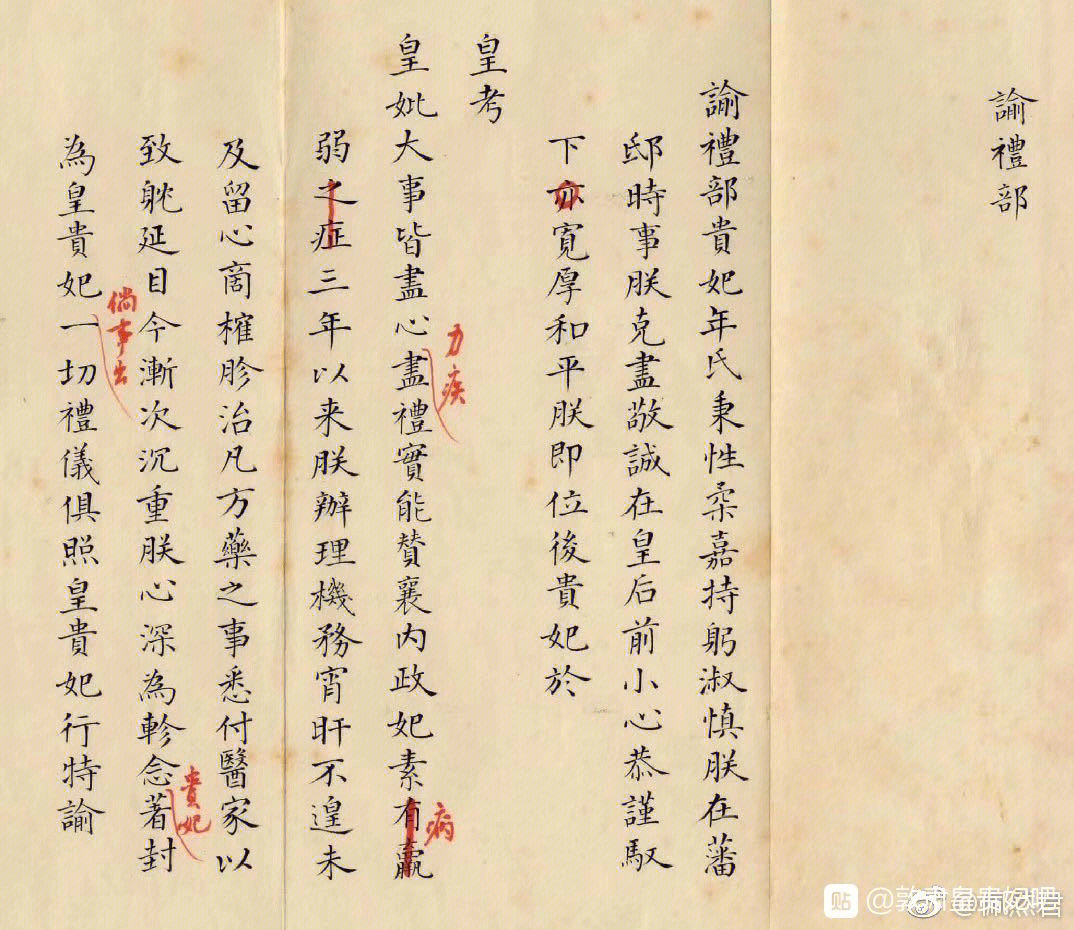 諭禮部
諭禮部貴妃年氏秉性柔嘉持躬淑慎朕在藩
邸時事朕克盡敬誠在皇后前小心恭謹馭
下亦寬厚和平朕即位後貴妃於
皇考
皇妣大事皆盡心盡禮實能贊襄內政妃素有羸
力疾
病
弱之症三年以来朕辦理機務宵旰不遑未
及留心商榷胗治凡方藥之事悉付醫家以
致躭延目今漸次沉重朕心深為軫念著封
貴妃
為皇貴妃一切禮儀俱照皇貴妃行特諭
倘事出
貼 @敦肅皇貴妃吧